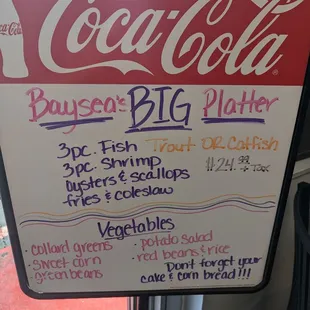 Coca-Cola
Coca-Cola
Baysea's BIG Platter
3pc. Fish Trout OR Catfish
3pc. Shrimp $24.99 + Tax
oysters & scallops
fries & coleslaw
Vegetables
• collard greens • potato salad
• sweet corn • red beans & rice
• green beans Don't forget your
cake & corn bread!!!